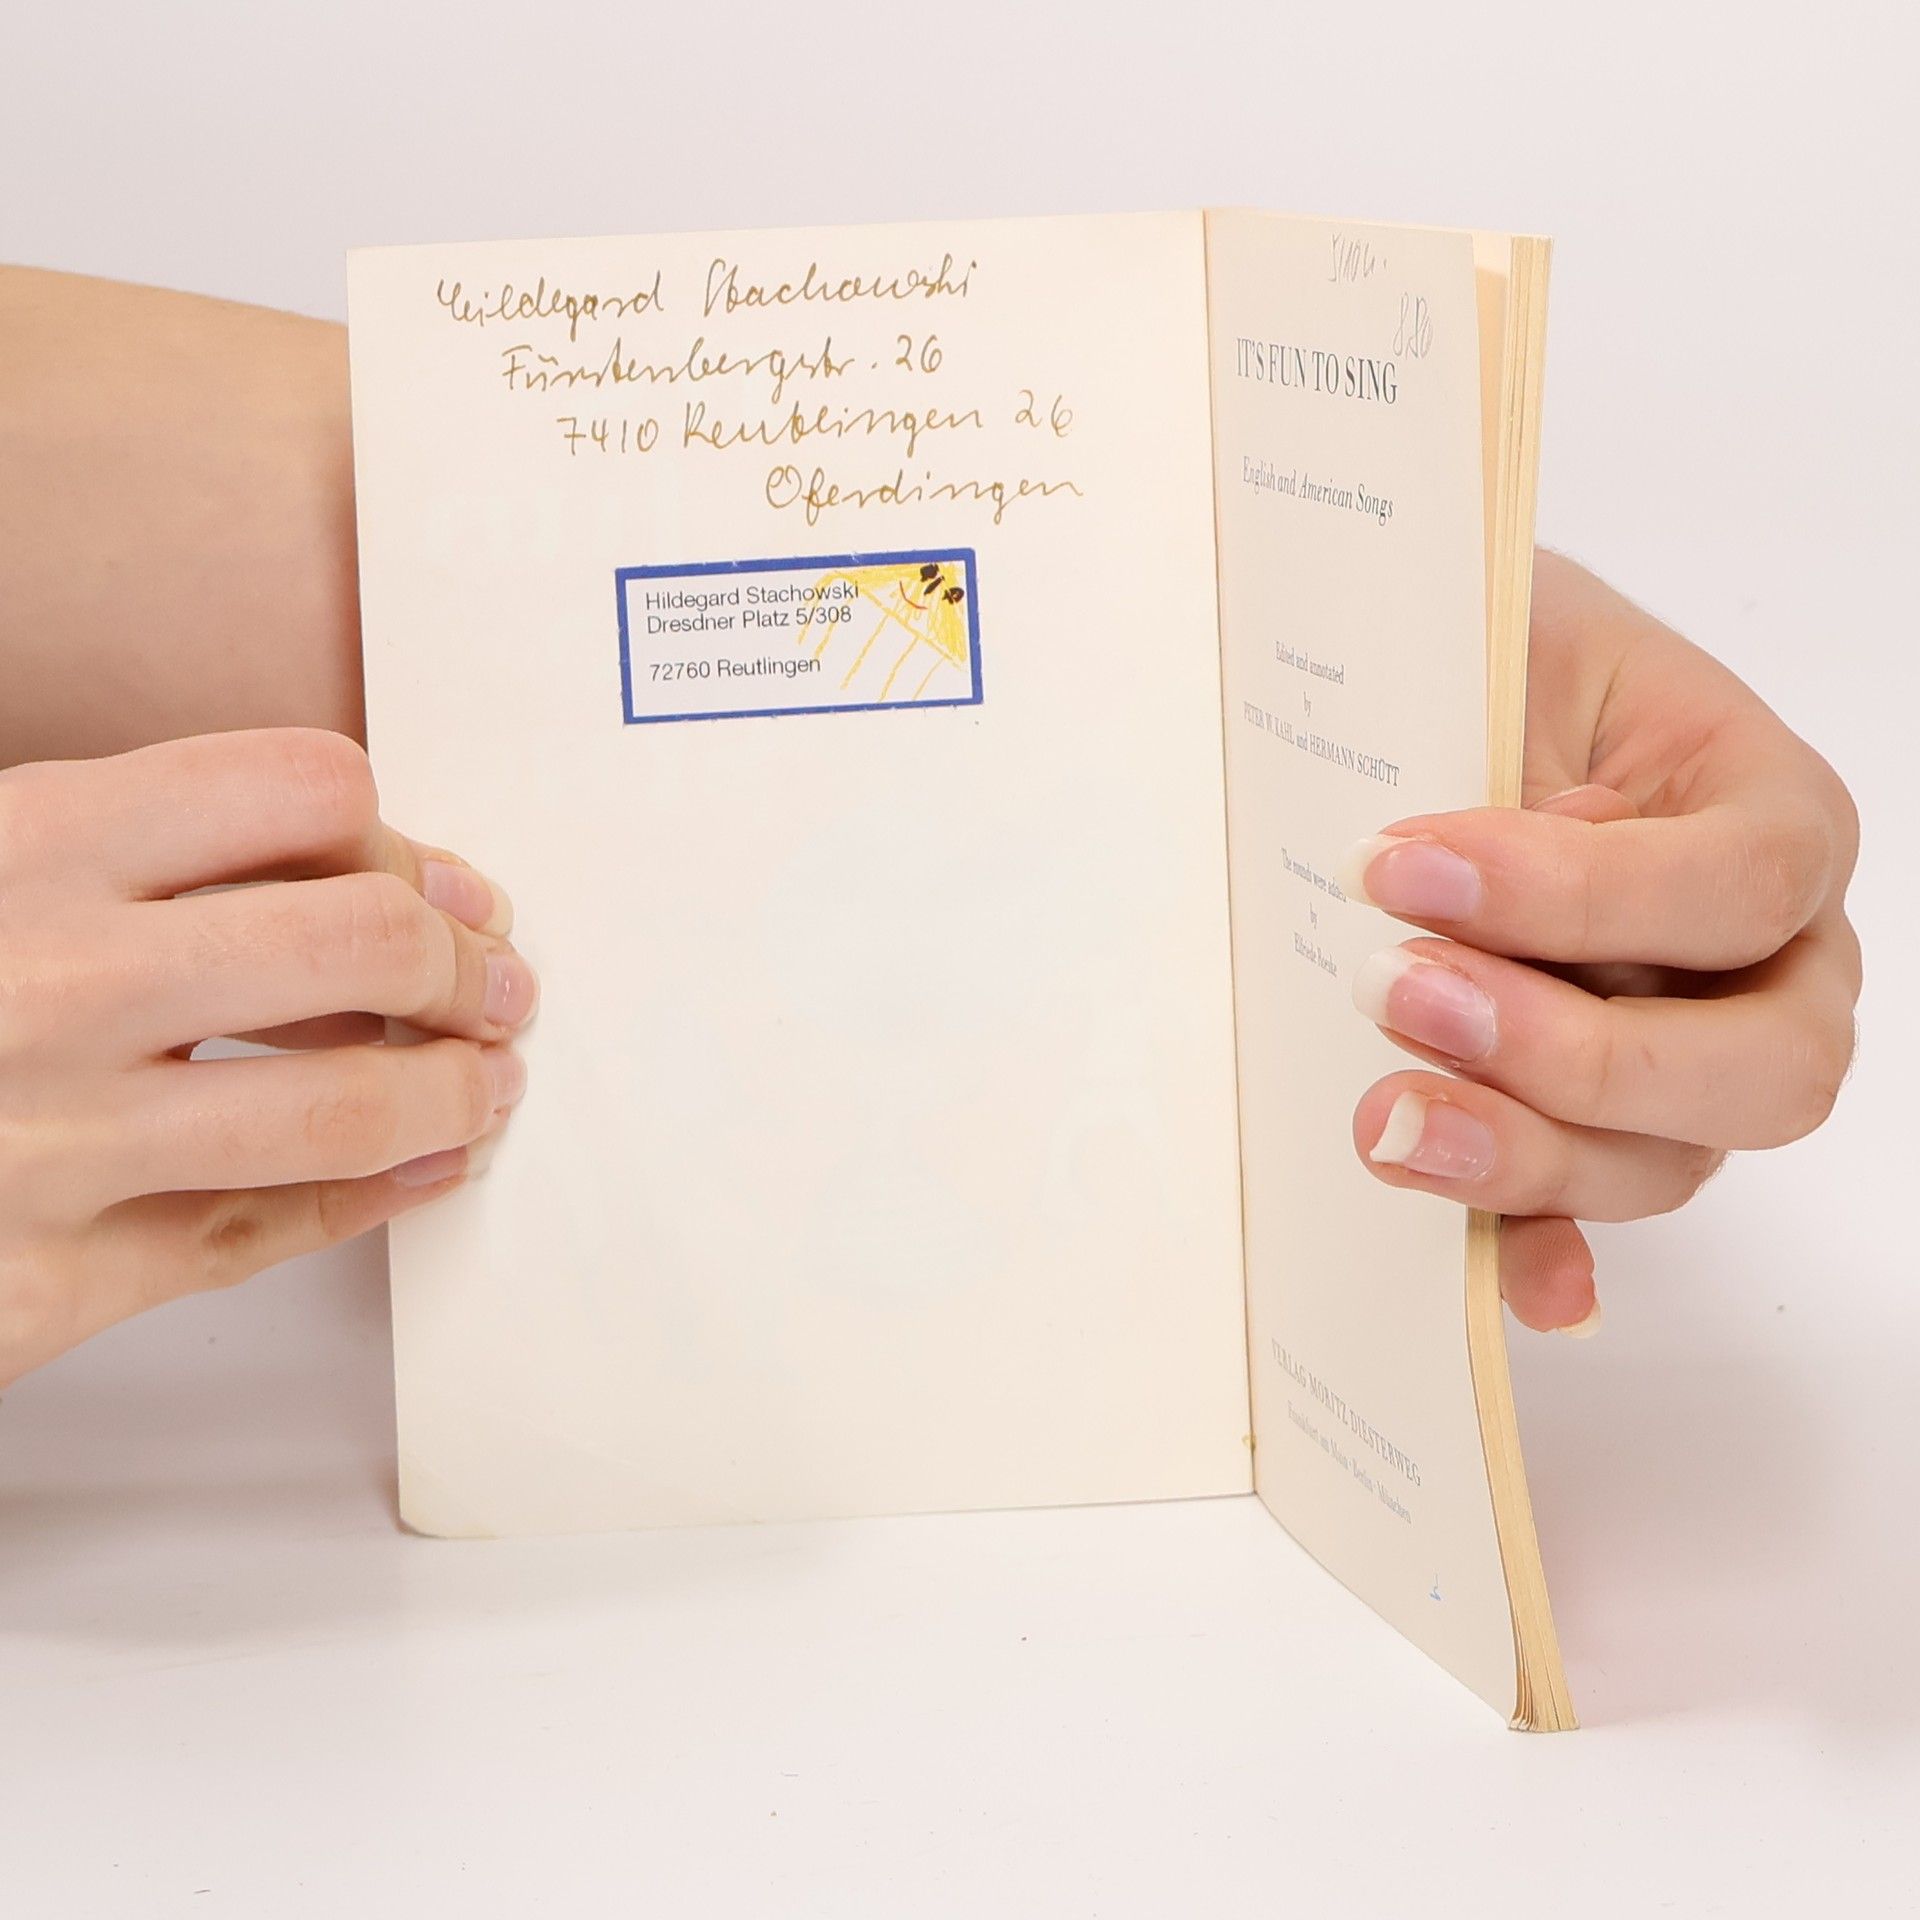 Hildegard Stachowski
Fürstenbergstr. 26
7410 Reutlingen 26
Oferdingen
Hildegard Stachowski
Dresdner Platz 5/308
72760 Reutlingen
IT'S FUN TO SING
English and American Songs
Edited and annotated
by
PETER W. KAHL and HERMANN SCHÜTT
The rounds were added
by
Elfriede
VERLAG MORITZ DIESTERWEG
Frankfurt am Main · Berlin · München